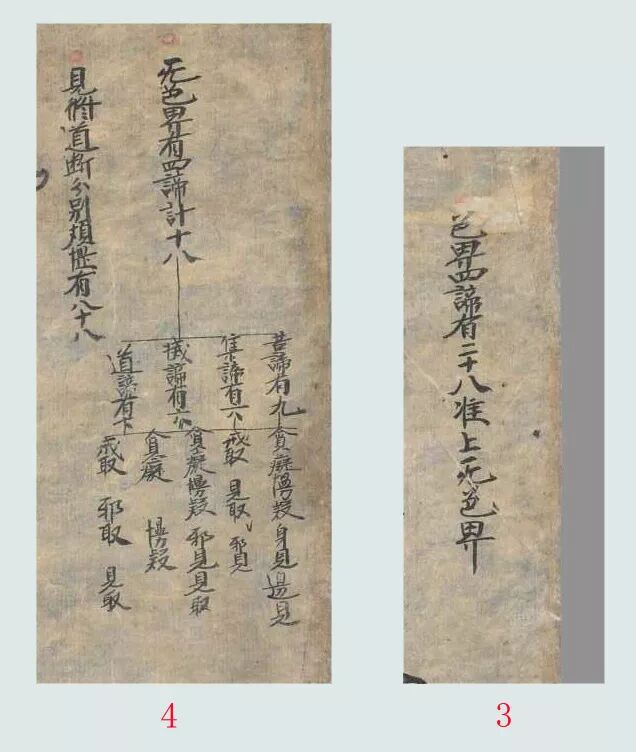 色界四諦有二十八准上无色界
3
无色界有四諦計十八
苦諦有九
集諦有六
滅諦有六
道諦有
貪癡慢疑 身見 邊見
戒取 見取 邪見
貪癡慢疑 邪見 見取
貪癡 慢疑
戒取 邪取 見取
見修道断分別煩惱有八十八
4